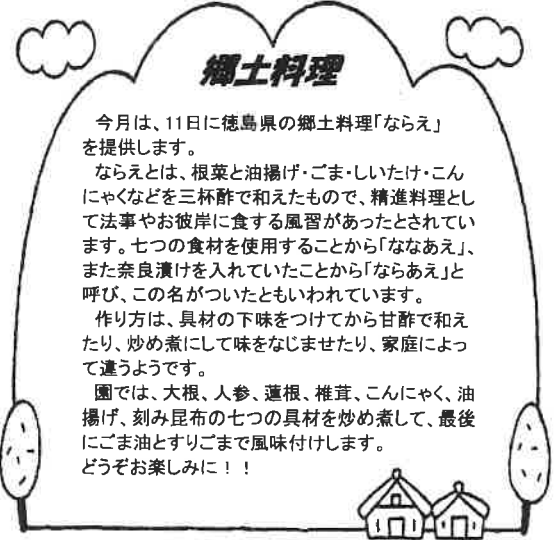 郷土料理
今月は、11日に徳島県の郷土料理「ならえ」
を提供します。
ならえとは、根菜と油揚げ・ごま・しいたけ・こん
にゃくなどを三杯酢で和えたもので、精進料理とし
て法事やお彼岸に食する風習があったとされてい
ます。七つの食材を使用することから「ななあえ」、
また奈良漬けを入れていたことから「ならあえ」と
呼び、この名がついたともいわれています。
作り方は、具材の下味をつけてから甘酢で和え
たり、炒め煮にして味をなじませたり、家庭によっ
て違うようです。
園では、大根、人参、蓮根、椎茸、こんにゃく、油
揚げ、刻み昆布の七つの具材を炒め煮して、最後
にごま油とすりごまで風味付けします。
どうぞお楽しみに！！